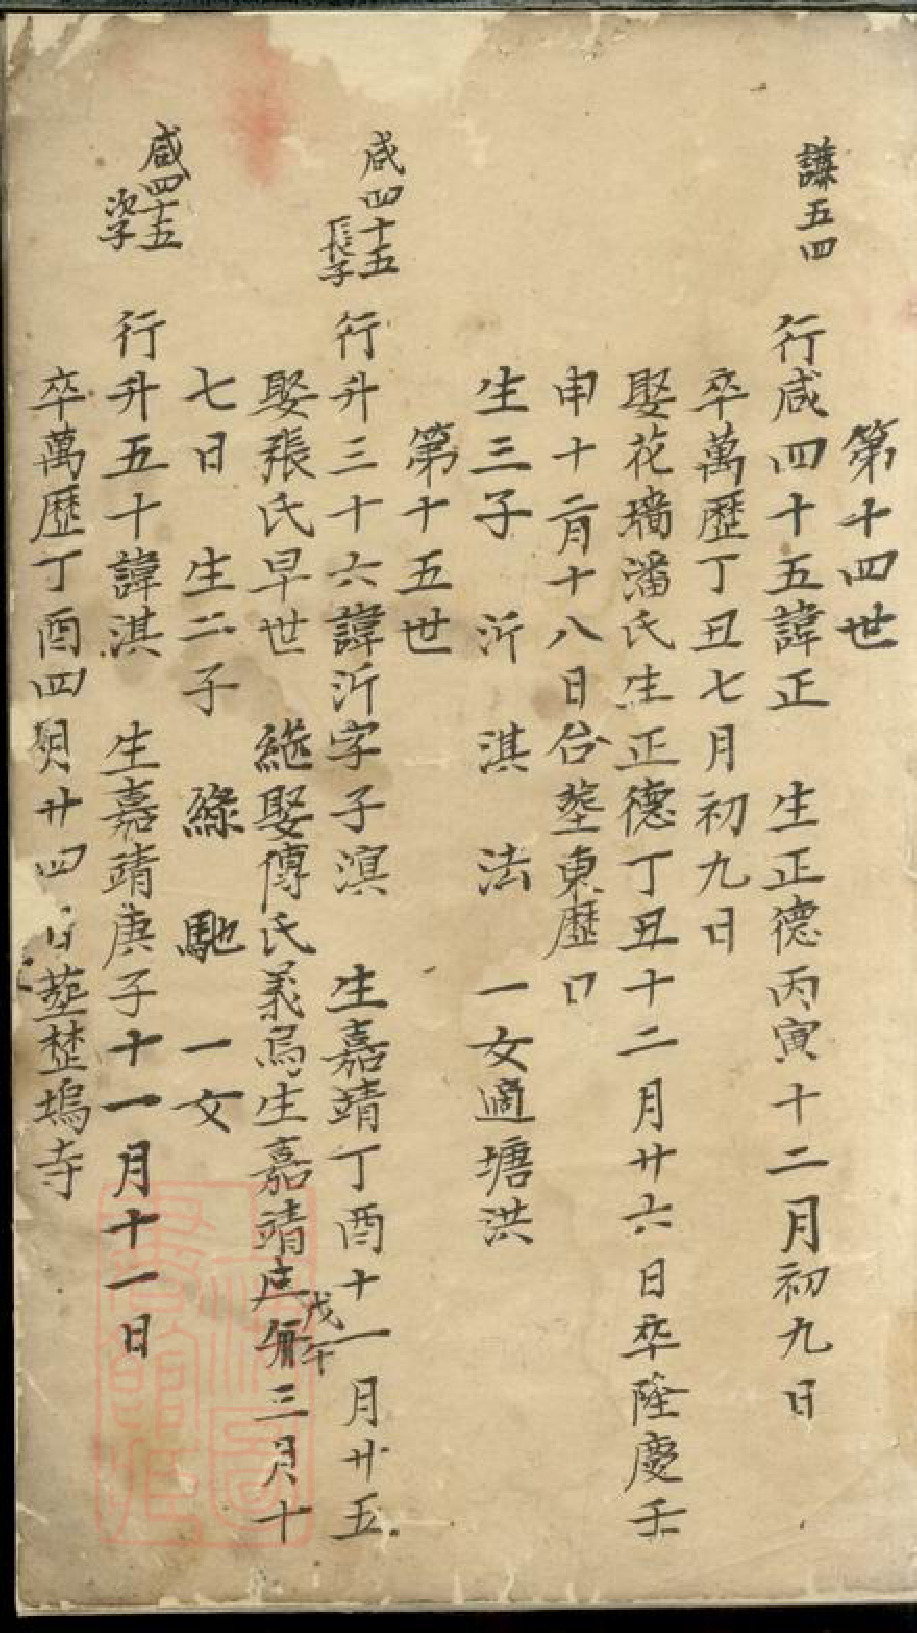 第十四世
謙五四
行咸四十五諱正 生正德丙寅十二月初九日
卒萬歷丁丑七月初九日
娶花墻潘氏生正德丁丑十二月廿六日卒隆慶壬
申十二月十八日合塟東歷口
生三子 沂 淇 法 一女適塘洪
第十五世
咸四十五
長子
行升三十六諱沂字子溟 生嘉靖丁酉十一月廿五
娶張氏早世 繼娶傅氏義烏生嘉靖戊午三月十
七日 生二子 綠 馳 一女
咸四十五
次子
行升五十諱淇 生嘉靖庚子十一月十一日
卒萬歷丁酉四月廿四日塟塢寺